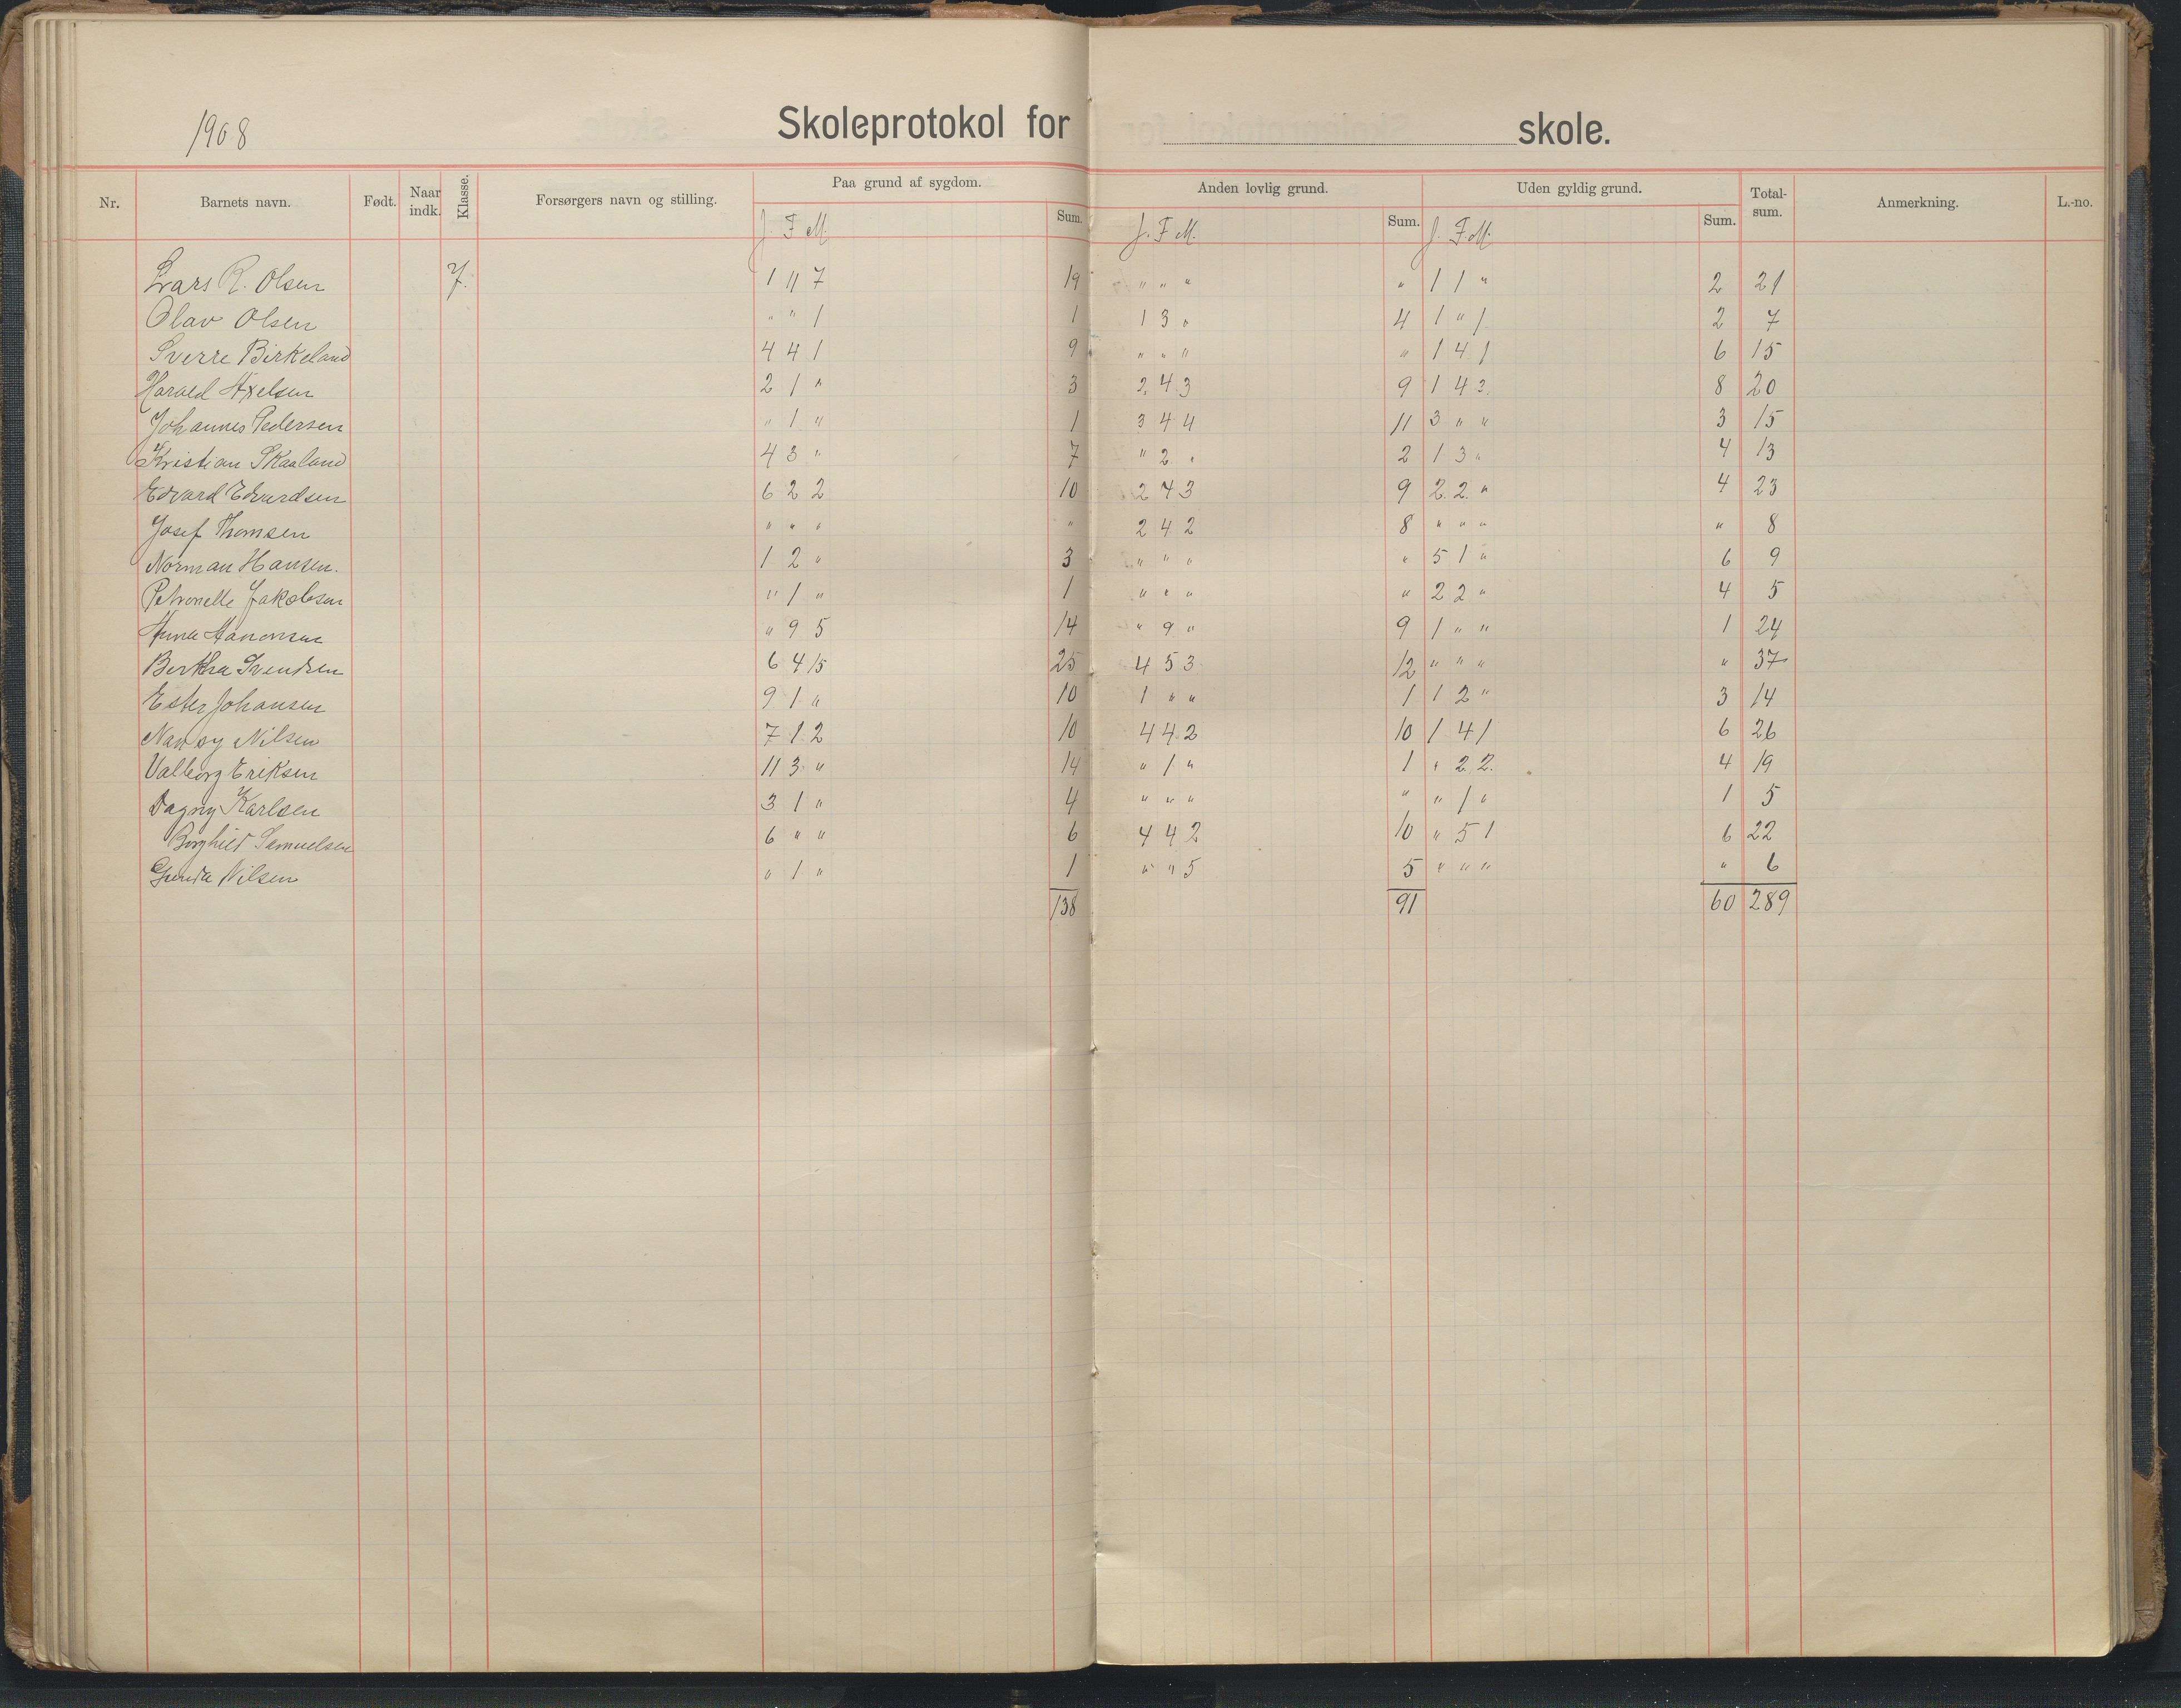 1908
Skoleprotokol for skole.
Nr. Barnets navn. Født. Naar indk. Klasse. Forsørgers navn og stilling. Paa grund af sygdom. Sum. Anden lovlig grund. Sum. Uden gyldig grund. Sum. Total-sum. Anmerkning. L.-no.
J. F. M. J. F. M. J. F. M.
Lars R. Olsen 7. 1 11 7 19 " " " " 1 1 " 2 21
Olav Olsen " " 1 1 1 3 " 4 1 " 1 2 7
Sverre Birkeland 4 4 1 9 " " " " 1 4 1 6 15
Harald Axelsen 2 1 " 3 2 4 3 9 1 4 3 8 20
Johannes Pedersen " 1 " 1 3 4 4 11 3 " " 3 15
Kristian Skaaland 4 3 " 7 " 2 " 2 1 3 " 4 13
Edvard Edvardsen 6 2 2 10 2 4 3 9 2 2 " 4 23
Josef Thomsen " " " " 2 4 2 8 " " " " 8
Norman Hansen. 1 2 " 3 " " " " 5 1 " 6 9
Petronelle Jakobsen " 1 " 1 " " " " 2 2 " 4 5
Anna Aanonsen " 9 5 14 " 9 " 9 1 " " 1 24
Bertha Svendsen 6 4 15 25 4 5 3 12 " " " " 37
Ester Johansen 9 1 " 10 1 " " 1 1 2 " 3 14
Nansy Nilsen 7 1 2 10 4 4 2 10 1 4 1 6 26
Valborg Eriksen 11 3 " 14 " 1 " 1 " 2 2 4 19
Dagny Karlsen 3 1 " 4 " " " " " 1 " 1 5
Borghild Samuelsen 6 " " 6 4 4 2 10 " 5 1 6 22
Gunda Nilsen " 1 " 1 " " 5 5 " " " " 6
138 91 60 289